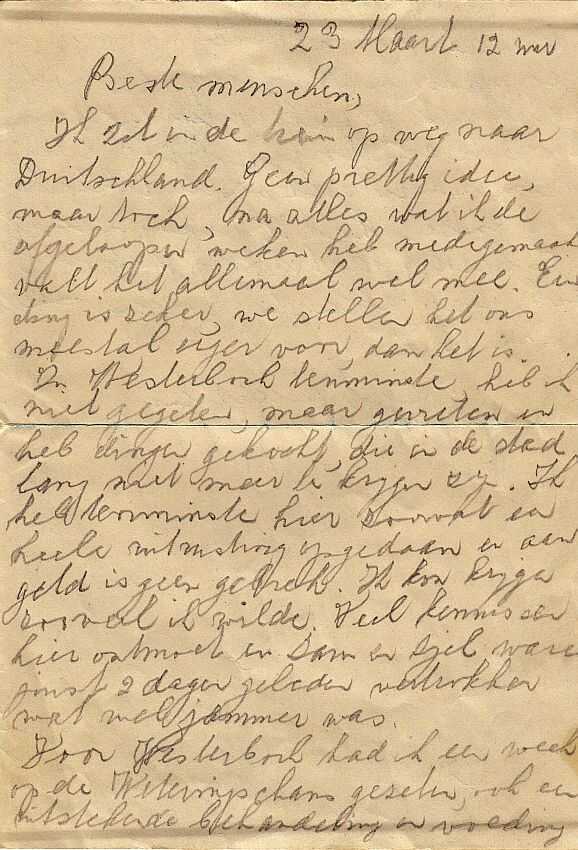 23 Maart 12 uur
Beste menschen,
Ik zit in de trein op weg naar
Duitschland. Geen prettig idee,
maar toch, na alles wat ik de
afgeloopen weken heb medegemaakt
valt het allemaal wel mee. Een
ding is zeker, we stellen het ons
meestal erger voor, dan het is.
In Westerbork tenminste heb ik
niet gegeten, maar gevreten en
heb dingen gekocht, die in de stad
lang niet meer te krijgen zijn. Ik
heb tenminste hier zoowat een
heele uitrusting opgedaan en aan
geld is geen gebrek. Ik kon krijgen
zooveel ik wilde. Veel kennissen
hier ontmoet en Sam en Sjel waren
juist 2 dagen geleden vertrokken
wat wel jammer was.
Voor Westerbork had ik een week
op de Weteringschans gezeten, ook een
uitstekende behandeling en voeding